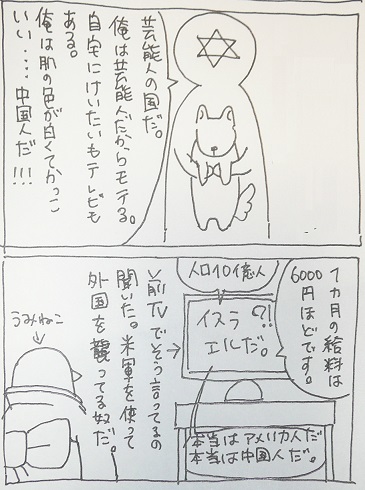 芸能人の国だ。
俺は芸能人だからモテる。
自宅にけいたいもテレビも
ある。
俺は肌の色が白くてかっこ
いい....中国人だ!!!
1カ月の給料は
6000円ほどです。
人口10億人
?!
イスラ
エルだ。
本当はアメリカ人だ
本当は中国人だ。
前TVでそう言ってるの
聞いた。米軍を使って
外国を襲ってる奴だ。
うみねこ